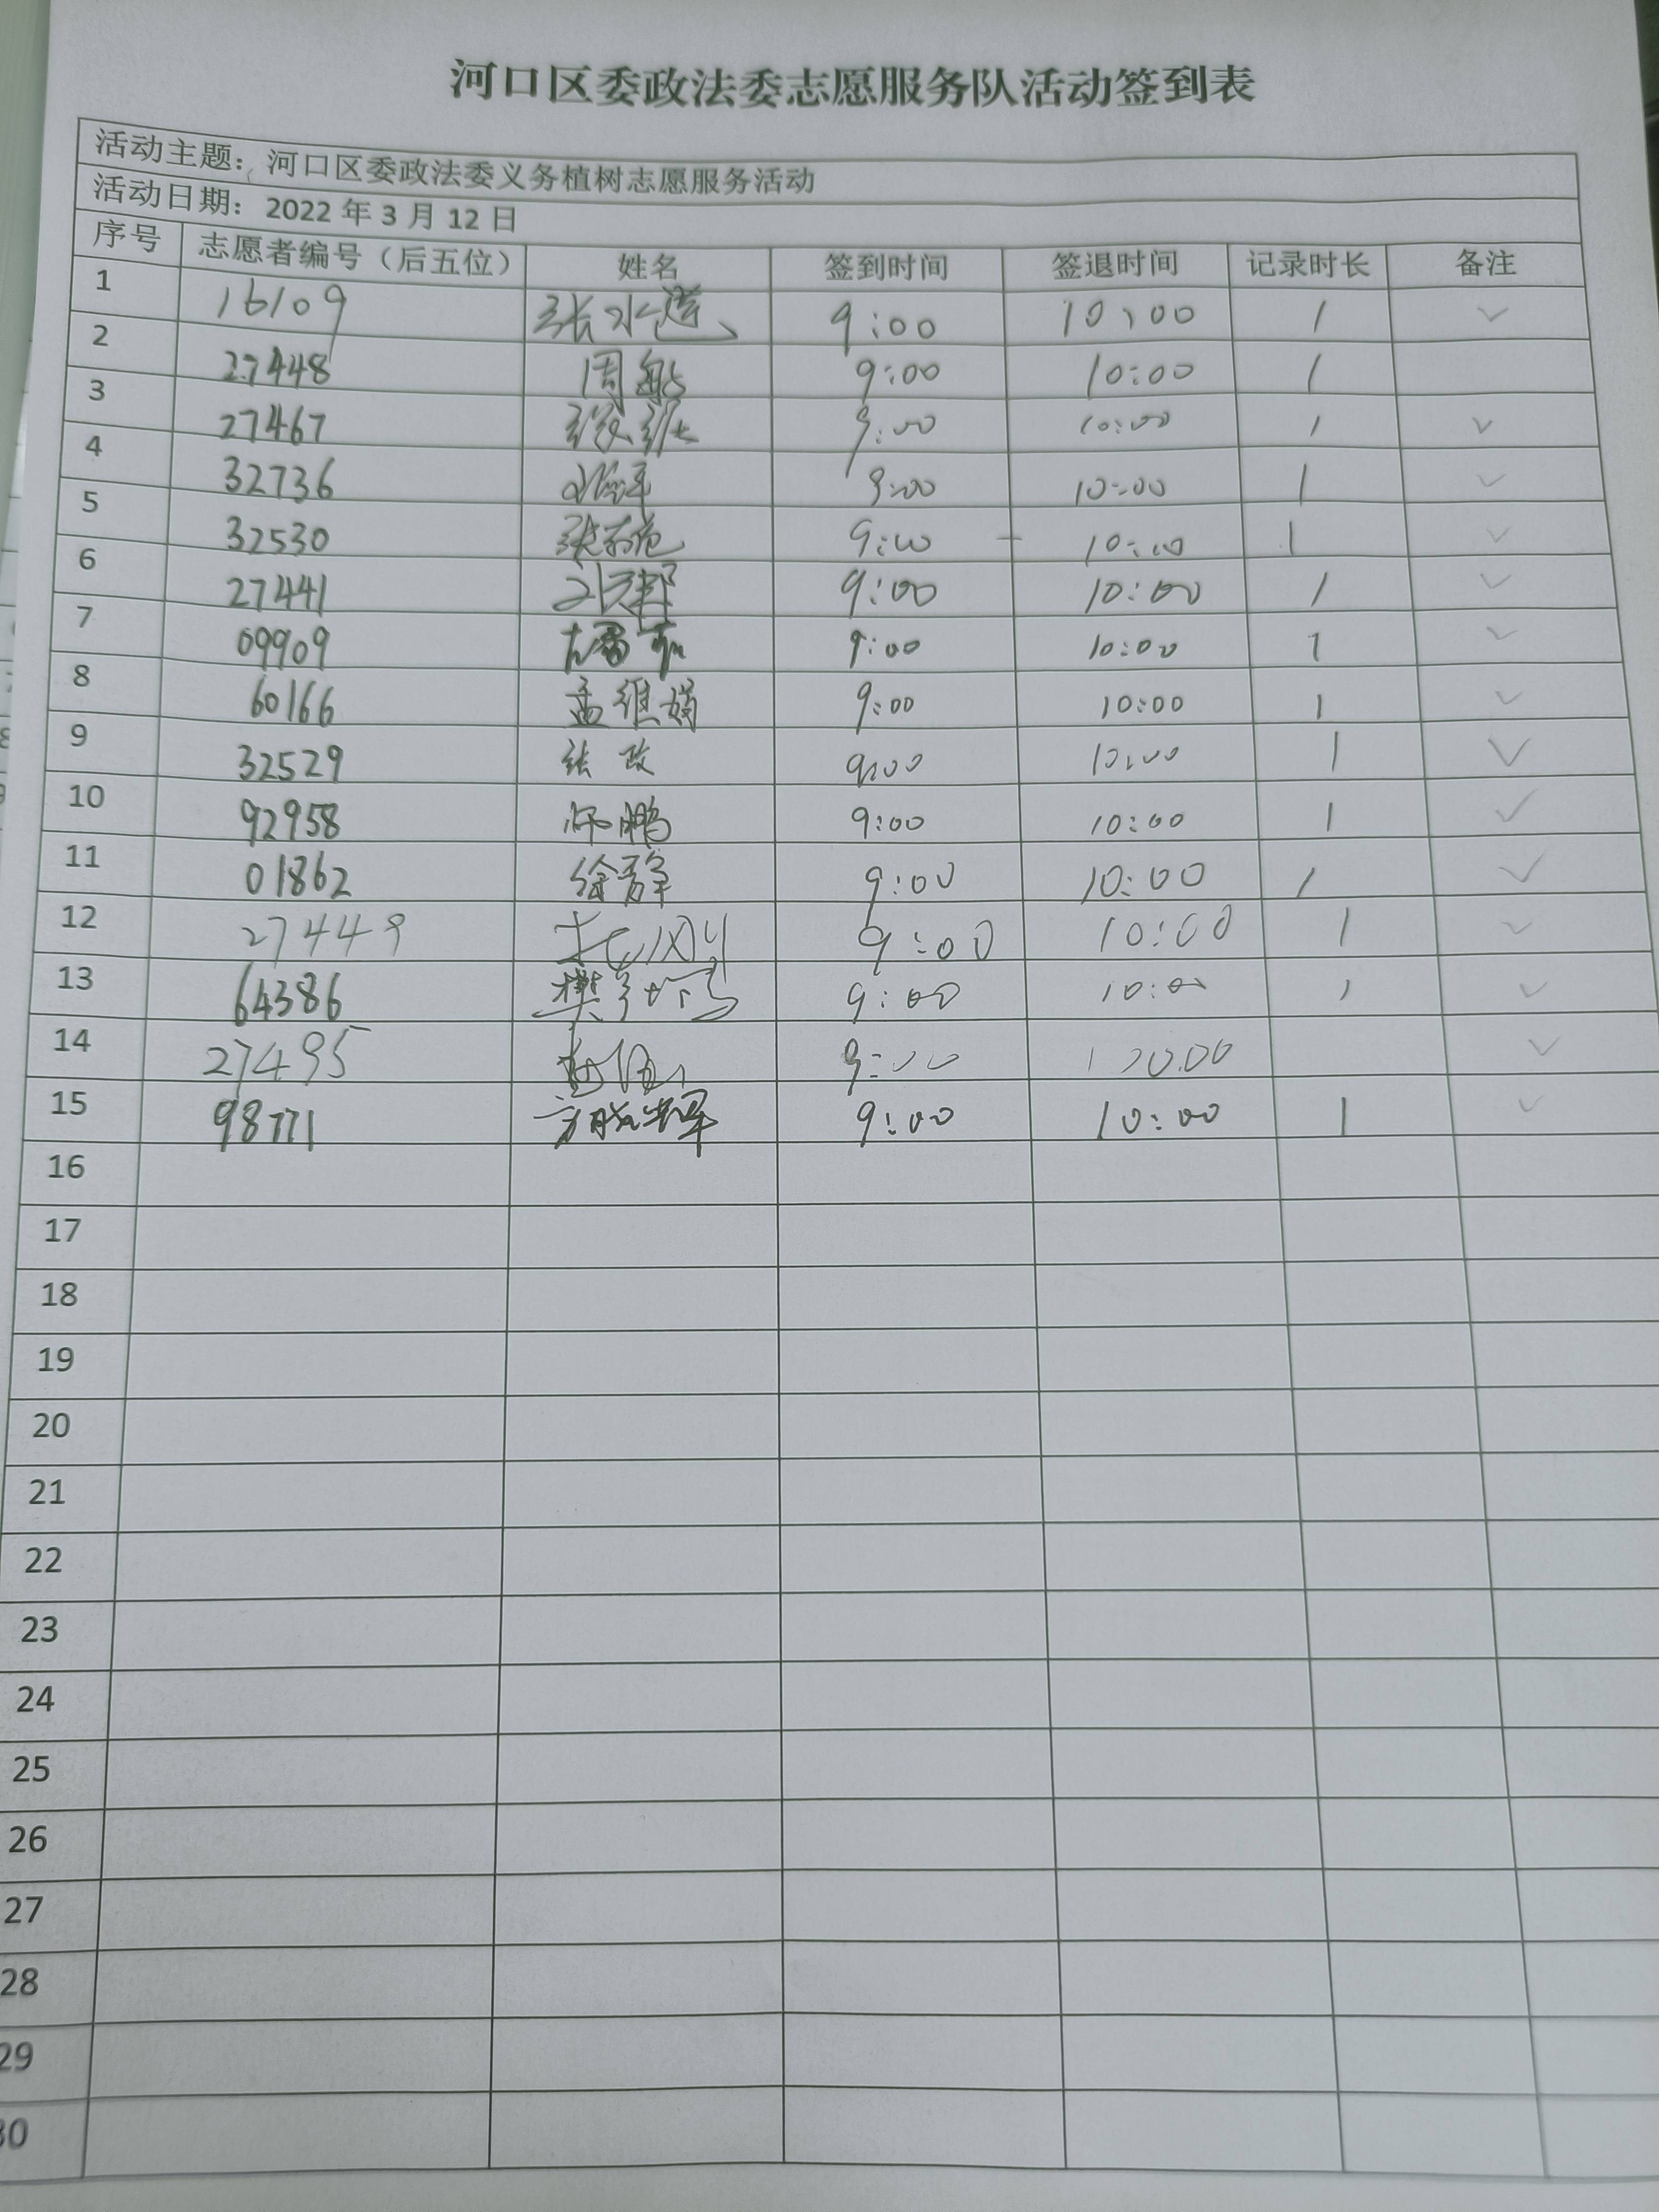 河口区委政法委志愿服务队活动签到表
活动主题：河口区委政法委义务植树志愿服务活动
活动日期：2022 年 3 月 12 日
序号 志愿者编号（后五位） 姓名 签到时间 签退时间 记录时长 备注
1 16109 张水莲 9:00 10:00 1 ✓
2 27448 周船 9:00 10:00 1
3 27467 9:00 10:00 1 ✓
4 32736 9:00 10:00 1 ✓
5 32530 9:00 10:00 1 ✓
6 27441 9:00 10:00 1 ✓
7 09909 9:00 10:00 1 ✓
8 60166 孟维娟 9:00 10:00 1 ✓
9 32529 张政 9:00 10:00 1 ✓
10 92958 9:00 10:00 1 ✓
11 01862 9:00 10:00 1 ✓
12 27449 9:00 10:00 1 ✓
13 64386 9:00 10:00 1 ✓
14 27495 9:00 ✓
15 98771 9:00 10:00 1 ✓
16
17
18
19
20
21
22
23
24
25
26
27
28
29
30